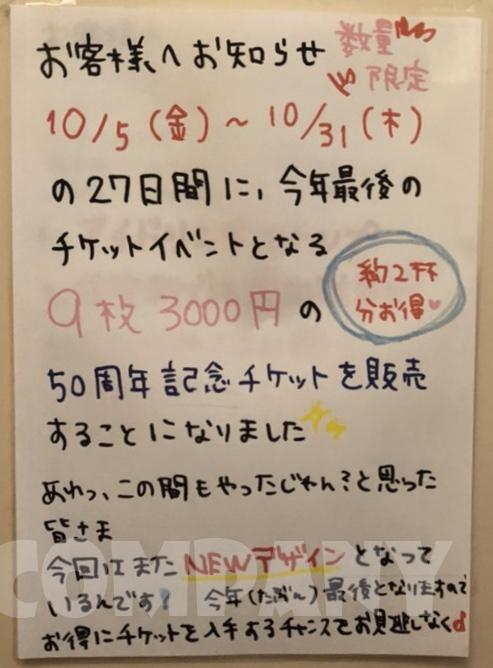 お客様へお知らせ 数量
限定
10/5(金)~10/31(木)
の27日間に、今年最後の
チケットイベントとなる
9枚3000円の 約2杯
分お得
50周年記念チケットを販売
することになりました
あれっ、この間もやったじゃん?と思った
皆さま
今回はまたNEWデザインとなって
いるんです! 今年(たぶん)最後となりますので
お得にチケットを入手するチャンスでお見逃しなく
COMPANY